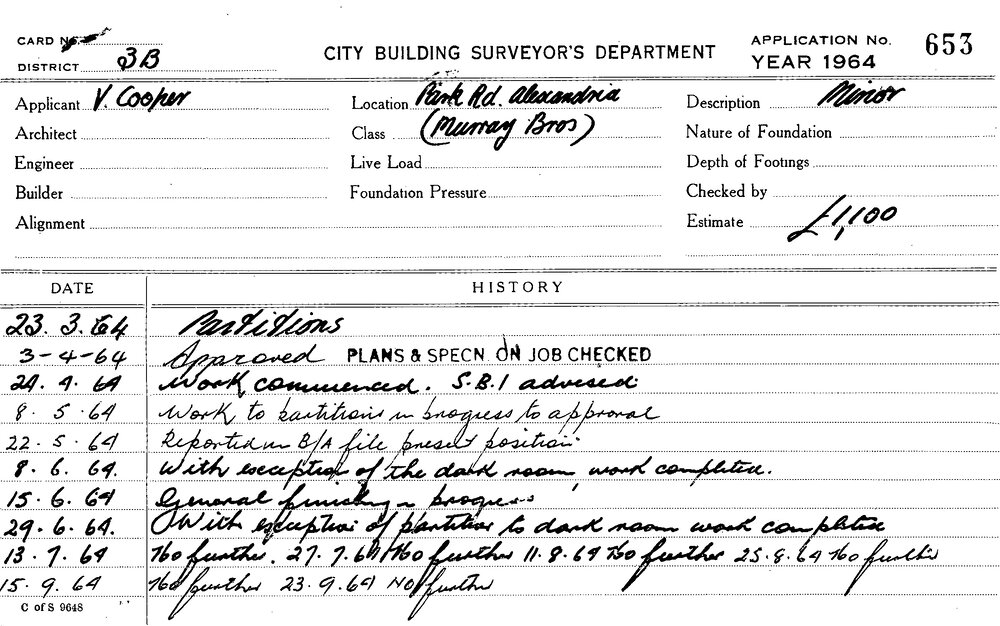 CARD No.
DISTRICT 3B
CITY BUILDING SURVEYOR'S DEPARTMENT
APPLICATION No. 653
YEAR 1964
Applicant V. Cooper
Location Park Rd. Alexandria
Description Minor
Architect
Class (Murray Bros)
Nature of Foundation
Engineer
Live Load
Depth of Footings
Builder
Foundation Pressure
Checked by
Alignment
Estimate £1,100
DATE HISTORY
23. 3. 64 Partitions
3-4-64 Approved PLANS & SPECN ON JOB CHECKED
24. 4. 64 Work commenced. S.B.I advised
8. 5. 64 Work to partitions in progress to approval
22. 5. 64 Reported in B/A file present position
8. 6. 64. With exception of the dark room, work completed.
15. 6. 64 General finishing in progress
29. 6. 64. With exception of partition to dark room work completed
13. 7. 64 No further. 27. 7. 64 No further 11. 8. 64 No further 25. 8. 64 No further
15. 9. 64 No further 23. 9. 64 No further
C of S 9648